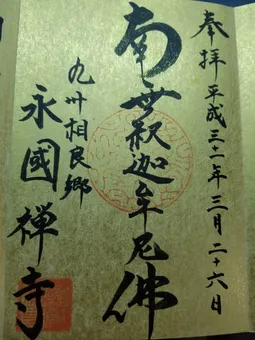 奉拝 平成三十一年三月二十六日
南無釈迦牟尼佛
九州相良郷
永國禅寺